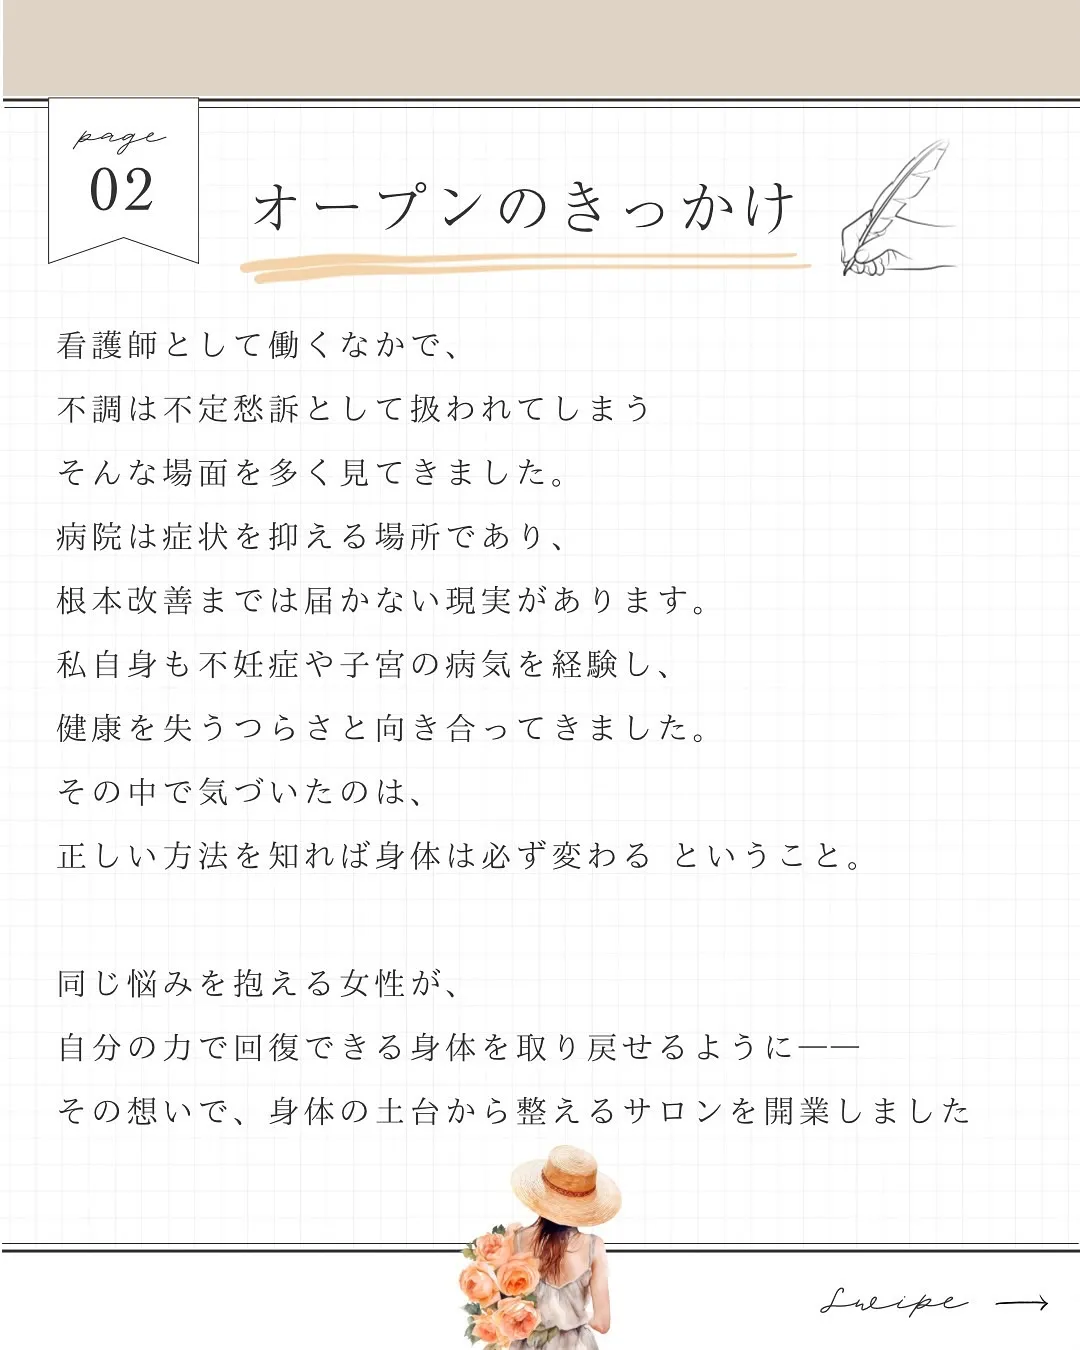 page
02
オープンのきっかけ
看護師として働くなかで、
不調は不定愁訴として扱われてしまう
そんな場面を多く見てきました。
病院は症状を抑える場所であり、
根本改善までは届かない現実があります。
私自身も不妊症や子宮の病気を経験し、
健康を失うつらさと向き合ってきました。
その中で気づいたのは、
正しい方法を知れば身体は必ず変わる ということ。
同じ悩みを抱える女性が、
自分の力で回復できる身体を取り戻せるように——
その想いで、身体の土台から整えるサロンを開業しました
Swipe →